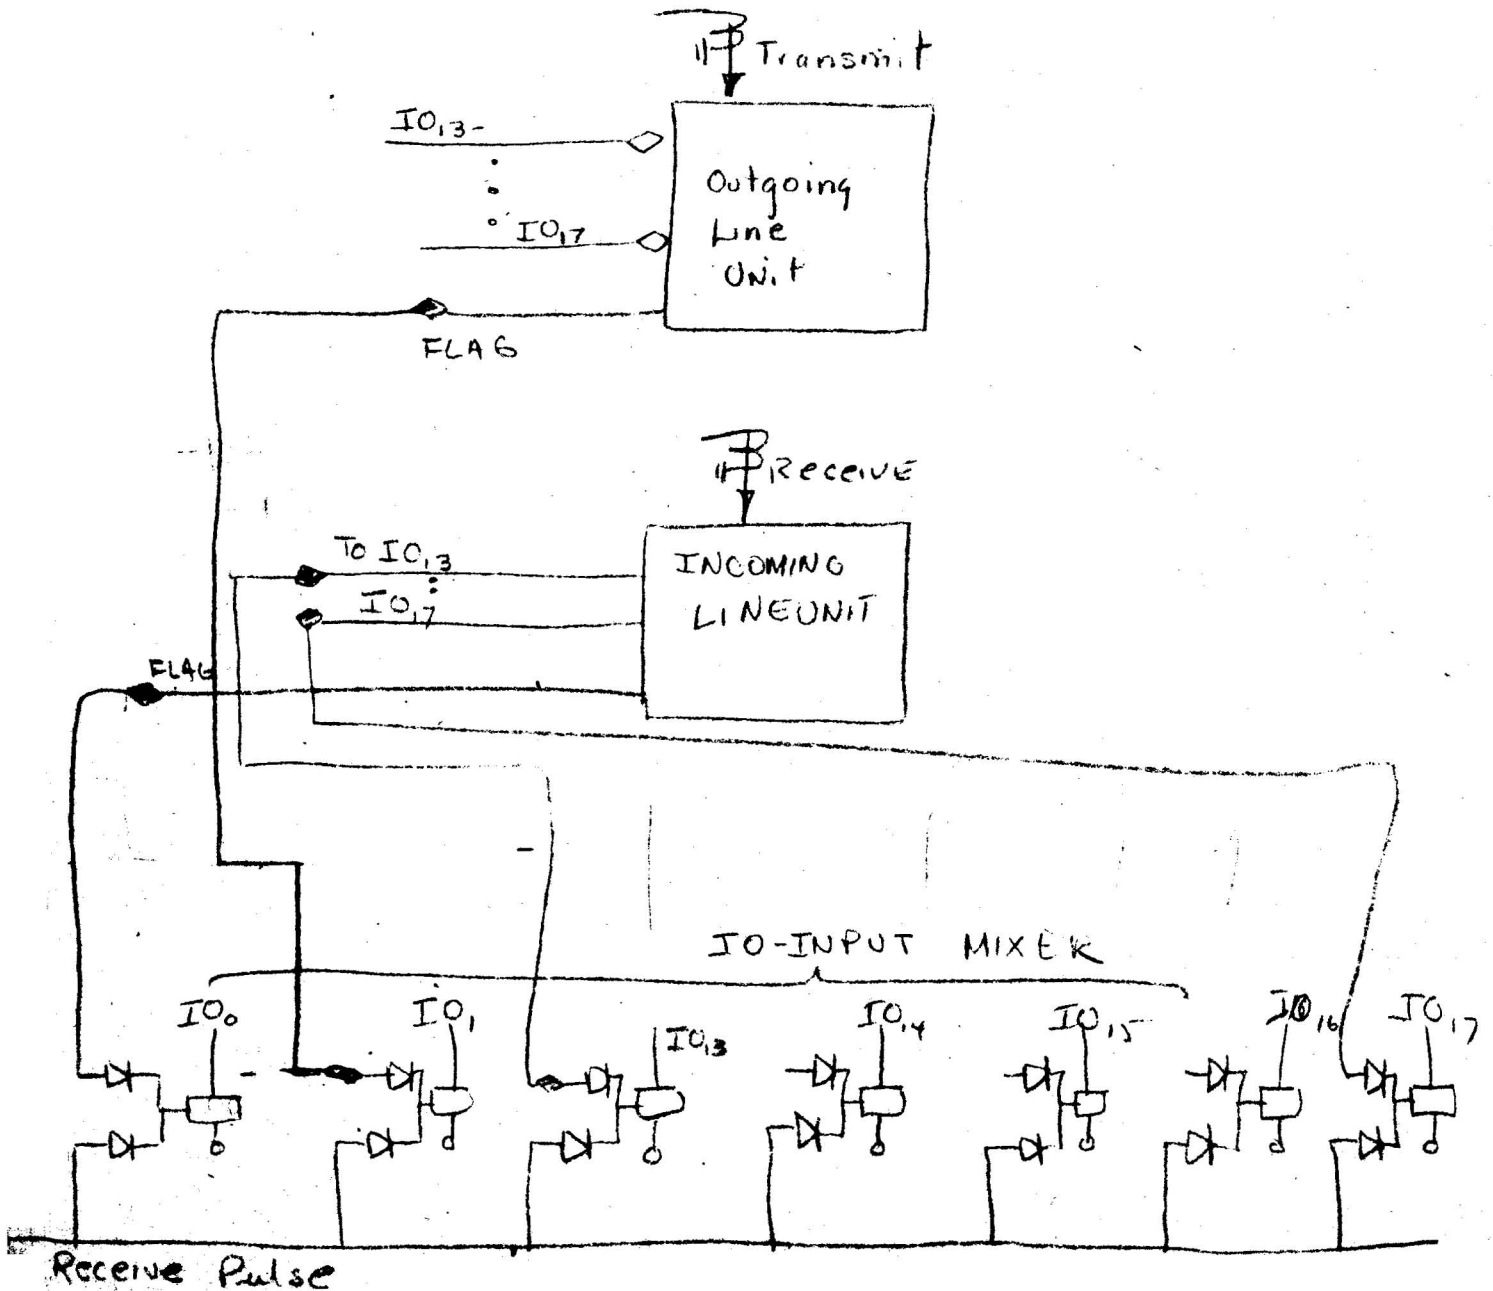 Transmit
IO13
IO17
Outgoing
Line
Unit
FLAG
Receive
To IO13
IO17
INCOMING
LINEUNIT
FLAG
IO-INPUT MIXER
IO0
IO1
IO13
IO14
IO15
IO16
IO17
Receive Pulse